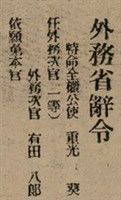 外務省辭令
特命全權公使 重光 葵
任外務次官(一等)
外務次官 有田 八郎
依願免本官